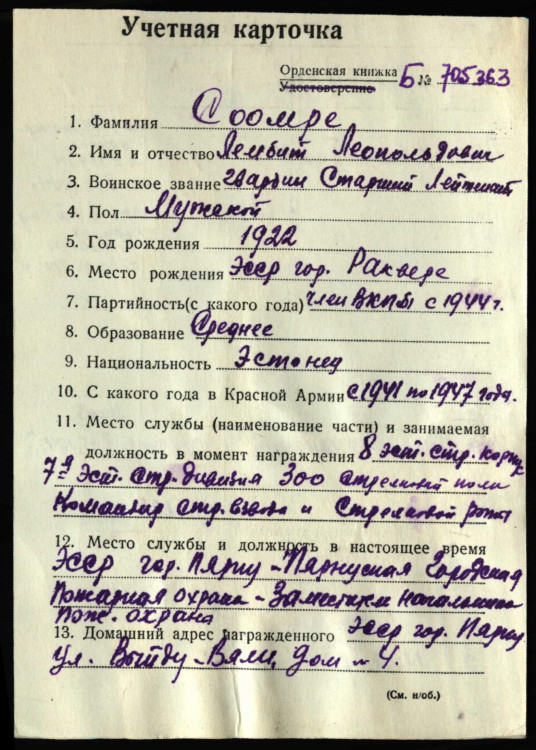 Учетная карточка
Орденская книжка Б № 705363
Удостоверение
1. Фамилия Соомре
2. Имя и отчество Лембит Леопольдович
3. Воинское звание гвардии Старший Лейтенант
4. Пол Мужской
5. Год рождения 1922
6. Место рождения Эсср гор. Раквере
7. Партийность(с какого года) член ВКПб с 1944 г.
8. Образование Среднее
9. Национальность Эстонец
10. С какого года в Красной Армии с 1941 по 1947 года.
11. Место службы (наименование части) и занимаемая
должность в момент награждения 8 эст. стр. корпус
7я Эст. стр. дивизия 300 стрелковый полк
Командир стр. взвода и Стрелковой роты
12. Место службы и должность в настоящее время
Эсср гор. Пярну - Пярнуская Городская
Пожарная охрана - Заместитель начальника
пож. охраны
13. Домашний адрес награжденного Эсср гор. Пярну
ул. Выйду-Вяли, дом № 4.
(См. н/об.)